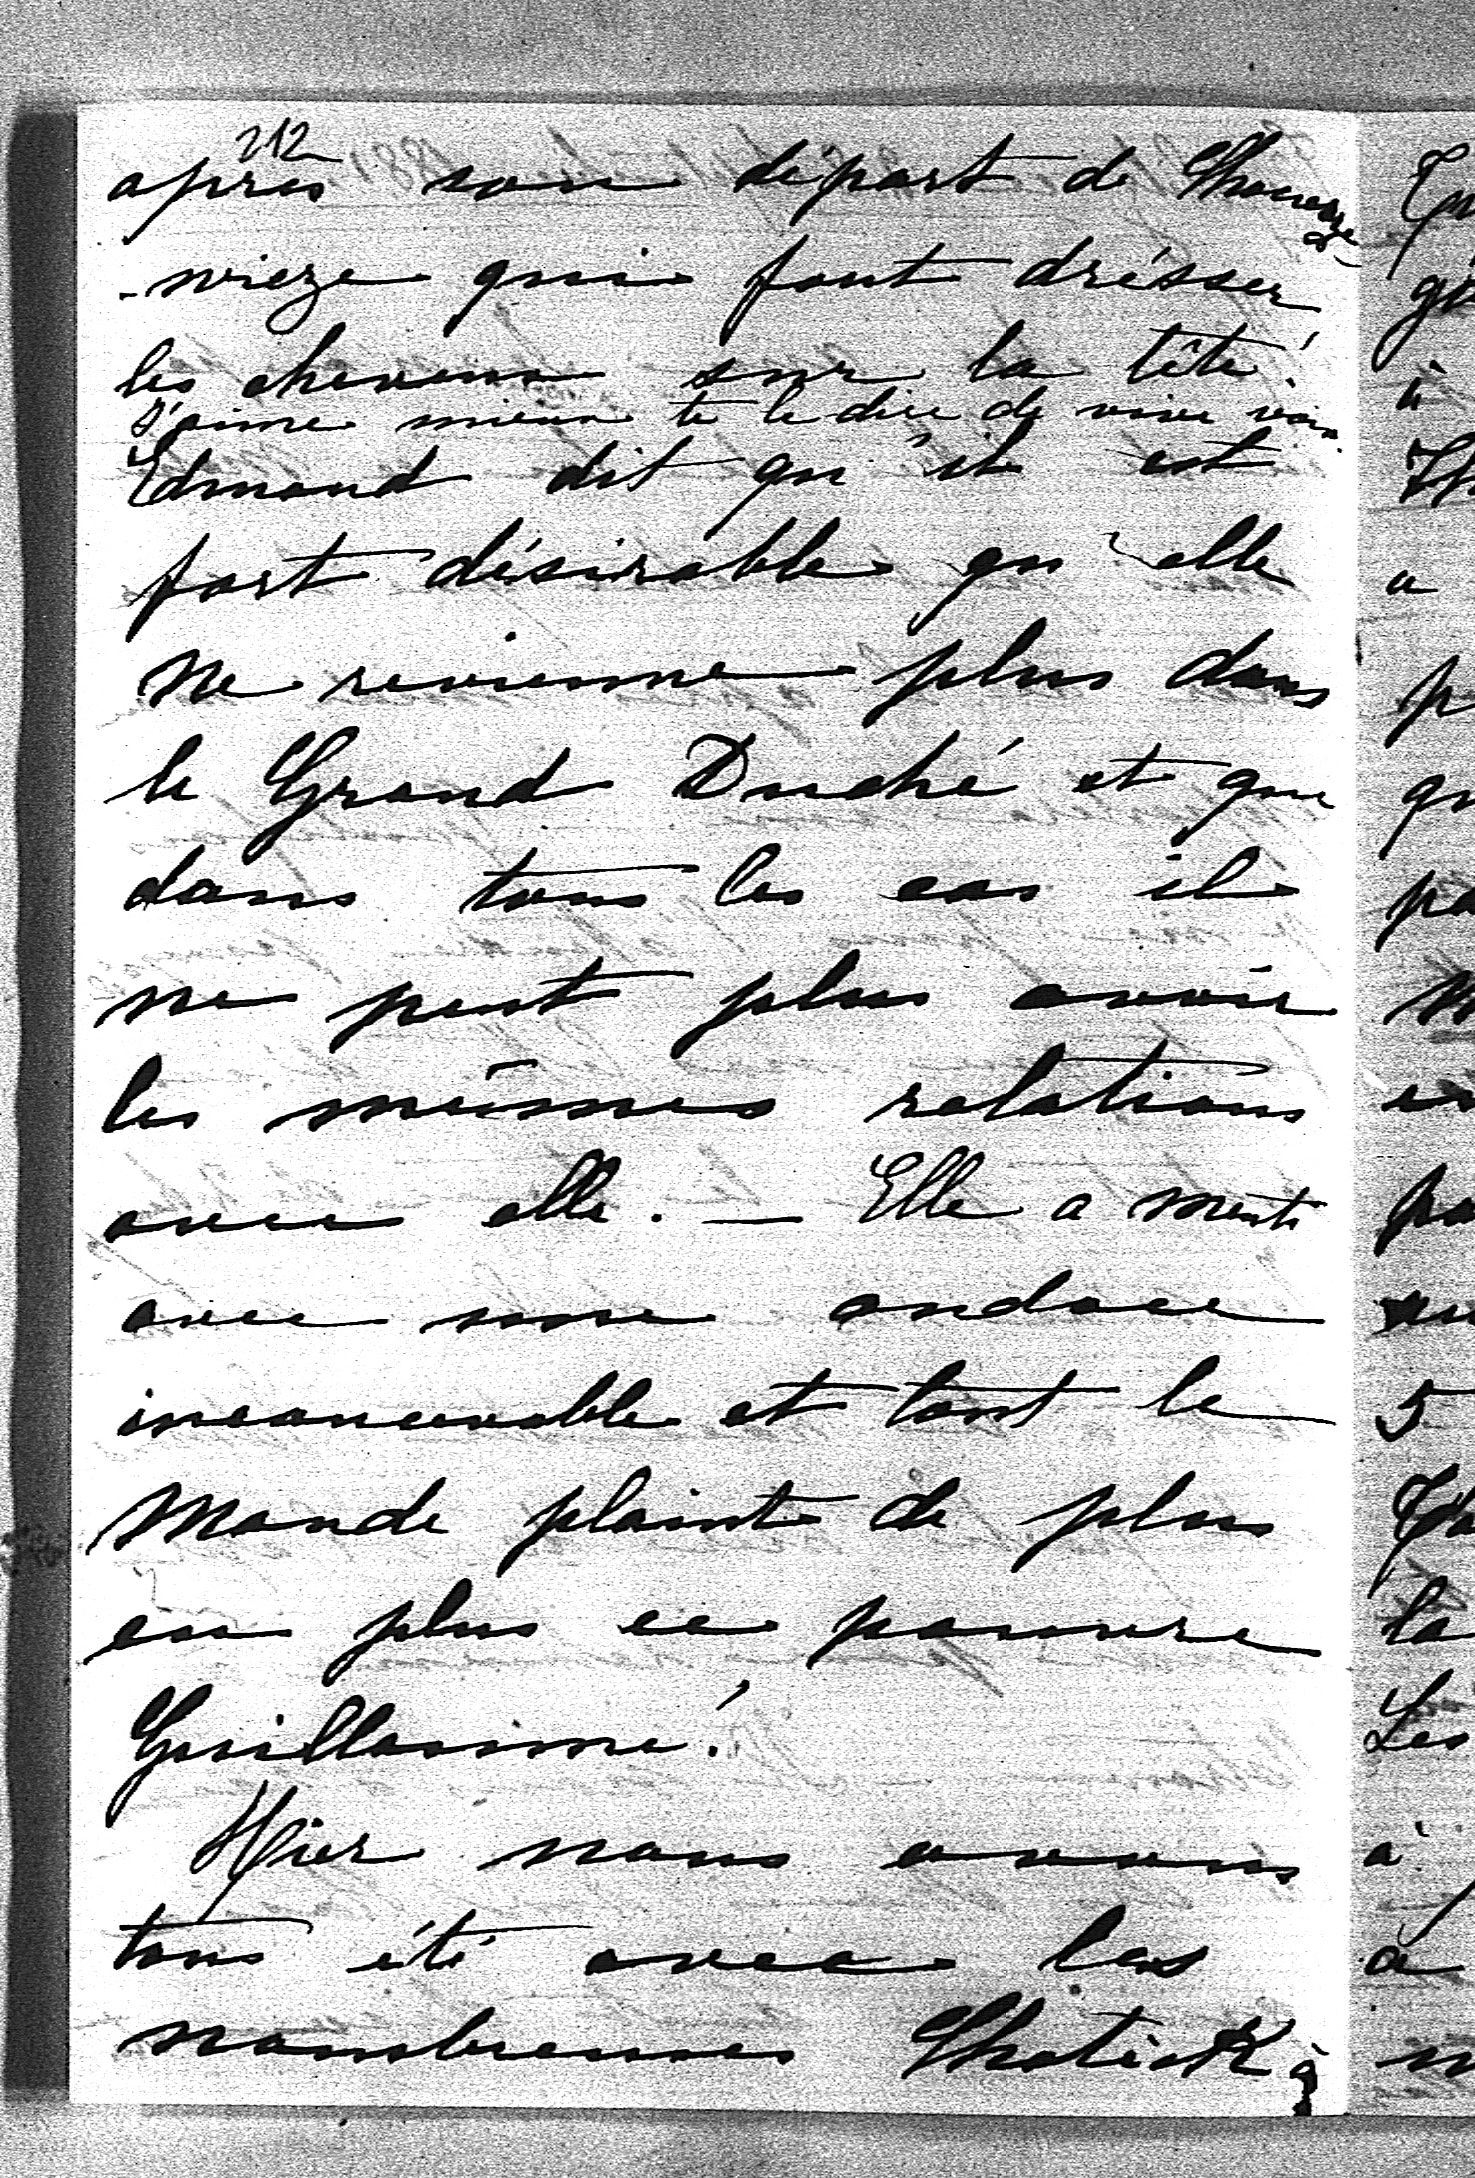 212
après son départ de
-nieze qui font drésser
les cheveux sur la tête!
J'aime mieux te le dire de vive voix.
Edmond dit qu'il est
fort désirable qu'elle
ne revienne plus dans
le Grand Duché et que
dans tous les cas il
ne peut plus avoir
les mêmes relations
avec elle. — Elle a menti
avec une audace
inconcevable et tout le
monde plaint de plus
en plus ce pauvre
Guillaume!
Hier nous avons
tous été avec les
nombreuses à